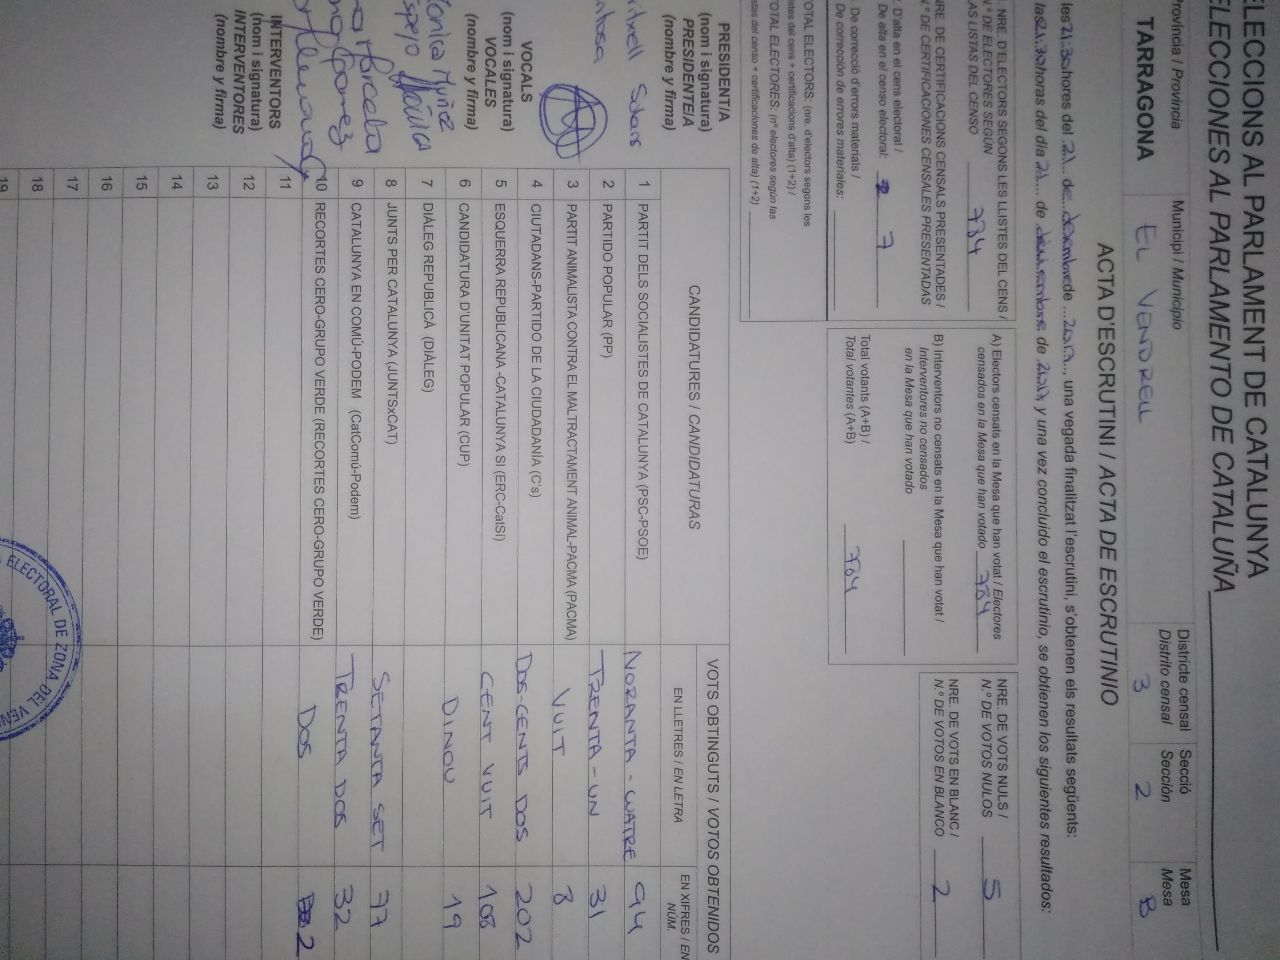 ELECCIONS AL PARLAMENT DE CATALUNYA
ELECCIONES AL PARLAMENTO DE CATALUÑA
Província / Provincia
TARRAGONA
Municipi / Municipio
EL VENDRELL
Districte censal
Distrito censal
3
Secció
Sección
2
Mesa
Mesa
B
ACTA D'ESCRUTINI / ACTA DE ESCRUTINIO
les 21:30 hores del 21 de desembre de 2017, una vegada finalitzat l'escrutini, s'obtenen els resultats següents:
las 21:30 horas del día 21 de de 2017 y una vez concluido el escrutinio, se obtienen los siguientes resultados:
NRE. D'ELECTORS SEGONS LES LLISTES DEL CENS /
N.º DE ELECTORES SEGÚN
LAS LISTAS DEL CENSO 784
NRE. DE CERTIFICACIONS CENSALS PRESENTADES /
N.º DE CERTIFICACIONES CENSALES PRESENTADAS
D'alta en el cens electoral /
De alta en el censo electoral: 7
De correcció d'errors materials /
De corrección de errores materiales:
TOTAL ELECTORS: (nre. d'electors segons les
llistes del cens + certificacions d'alta) (1+2) /
TOTAL ELECTORES: (nº electores según las
listas del censo + certificaciones de alta) (1+2)
A) Electors censats en la Mesa que han votat / Electores
censados en la Mesa que han votado 784
B) Interventors no censats en la Mesa que han votat /
Interventores no censados
en la Mesa que han votado
Total votants (A+B) /
Total votantes (A+B) 784
NRE. DE VOTS NULS /
N.º DE VOTOS NULOS 5
NRE. DE VOTS EN BLANC /
N.º DE VOTOS EN BLANCO 2
PRESIDENT/A
(nom i signatura)
PRESIDENTE/A
(nombre y firma)
VOCALS
(nom i signatura)
VOCALES
(nombre y firma)
Muñoz
INTERVENTORS
(nom i signatura)
INTERVENTORES
(nombre y firma)
CANDIDATURES / CANDIDATURAS
VOTS OBTINGUTS / VOTOS OBTENIDOS
EN LLETRES / EN LETRA
EN XIFRES / EN
NÚM.
1 PARTIT DELS SOCIALISTES DE CATALUNYA (PSC-PSOE) NORANTA-QUATRE 94
2 PARTIDO POPULAR (PP) TRENTA-UN 31
3 PARTIT ANIMALISTA CONTRA EL MALTRACTAMENT ANIMAL-PACMA (PACMA) VUIT 8
4 CIUTADANS-PARTIDO DE LA CIUDADANÍA (C's) DOS-CENTS DOS 202
5 ESQUERRA REPUBLICANA -CATALUNYA SI (ERC-CatSI) CENT VUIT 108
6 CANDIDATURA D'UNITAT POPULAR (CUP) DINOU 19
7 DIÀLEG REPUBLICÀ (DIÀLEG)
8 JUNTS PER CATALUNYA (JUNTSxCAT) SETANTA SET 77
9 CATALUNYA EN COMÚ-PODEM (CatComú-Podem) TRENTA DOS 32
10 RECORTES CERO-GRUPO VERDE (RECORTES CERO-GRUPO VERDE) DOS 2
11
12
13
14
15
16
17
18
19
ELECTORAL DE ZONA DEL